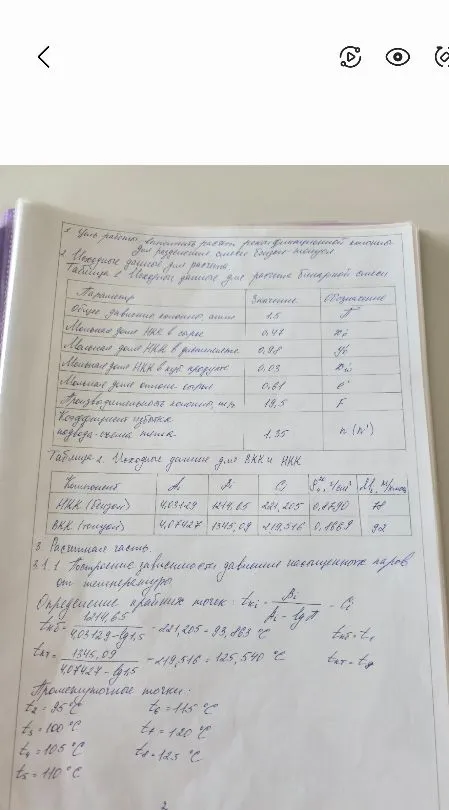 1. Цель работы: выполнить расчет ректификационной колонны
для разделения смеси бензол-толуол
2. Исходные данные для расчета.
Таблица 1. Исходные данные для расчета бинарной смеси
Параметр Значение Обозначение
Общее давление колонны, атм 1,5 П
Мольная доля НКК в сырье 0,47
Мольная доля НКК в дистилляте 0,98
Мольная доля НКК в куб. продукте 0,03
Мольная доля отгона сырья 0,61 e'
Производительность колонны, т/ч 19,5 F
Коэффициент избытка
подвода-съема тепла 1.35 n (n')
Таблица 2. Исходные данные для ВКК и НКК
Компонент A B C
НКК (бензол) 4,03129 1214,65 221,205 0,8790 78
ВКК (толуол) 4,07427 1345,09 219,516 0,8669 92
3. Расчетная часть.
3.1.1 Построение зависимости давления насыщенных паров
от температуры
Определение крайних точек: tкi = Bi / (Ai - lgП) - Ci
tкб = 1214,65 / (4,03129 - lg1,5) - 221,205 = 93,863 °C tкб = t1
tкт = 1345,09 / (4,07427 - lg1,5) - 219,516 = 125,540 °C tкт = t9
Промежуточные точки:
t2 = 95 °C t6 = 115 °C
t3 = 100 °C t7 = 120 °C
t4 = 105 °C t8 = 125 °C
t5 = 110 °C
2